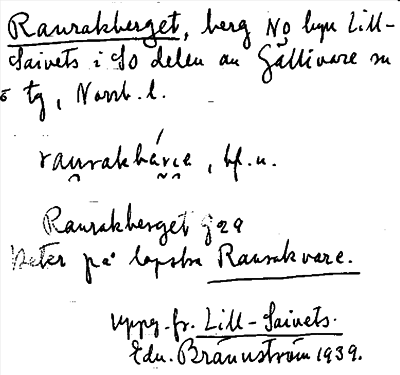 Raurakberget, berg NO byn Lill-
Saivets i SO delen av Gällivare sn
o tg, Norrb. l.
raurakbárıe, bf. u.
Raurakberget
heter på lapska Raurakvare.
Uppg. fr. Lill-Saivets.
Edv. Brännström 1939.